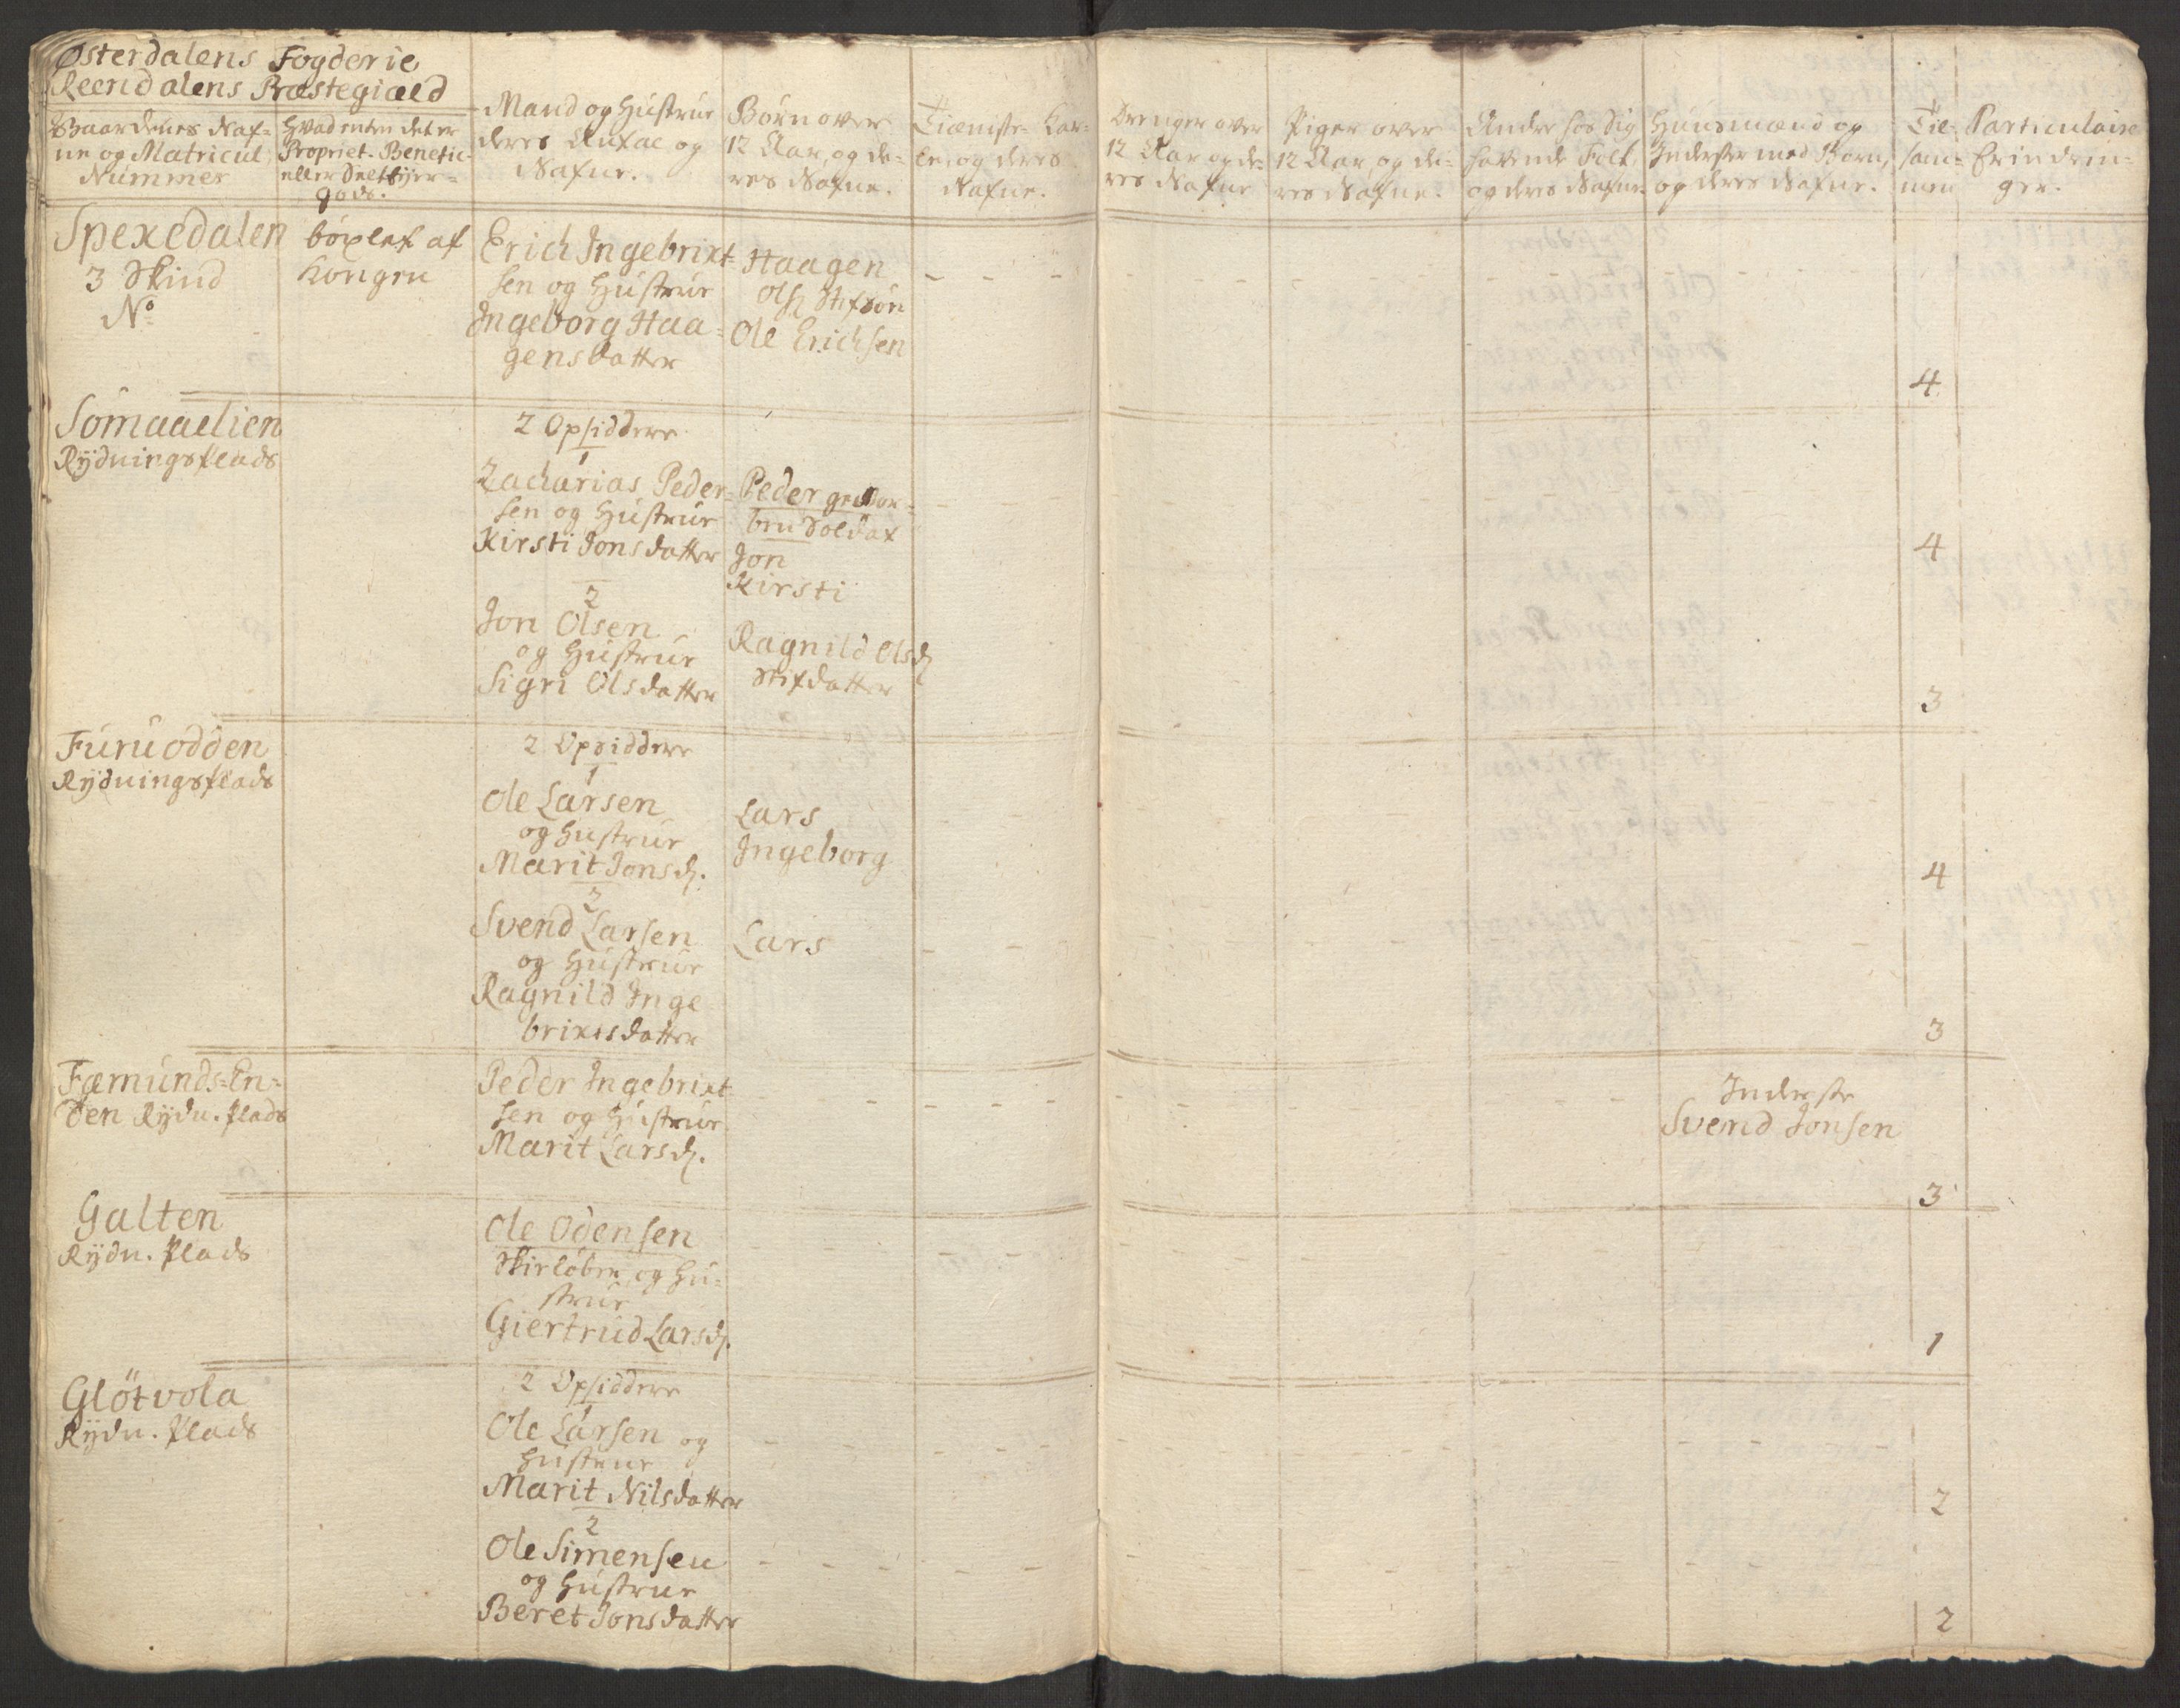 Østerdalens Fogderie
Reendalens Præstegiæld
Gaardenes Naf-
ne og Matricul
Nummer
Hvad enten det er
Propriet. Benefic-
eller Selv Eyer-
gods.
Mand og Hustrue
deres Antal og
Nafne.
Børn over
12 Aar, og de-
res Nafne.
Tieniste-Kar-
le, og deres
Nafne.
Drenger over
12 Aar og de-
res Nafne
Piger over
12 Aar, og de-
res Nafne.
Andre hos Sig
havende Folk
og deres Nafne.
Huusmænd og
Inderster med Børn,
og deres Nafne.
Til-
sam-
men
Particulaire
Erindrin-
ger.
Spekedalen
3 Skind
No
böxlet af
Kongen
Erich Ingebrikt-
sen og Hustrue
Ingeborg Haa-
gensdatter
Haagen
Ols. Stifsön
Ole Erichsen
4
Sömaaelien
Rÿdningsplads
2 Opsiddere
1
Zacharias Peder-
sen og Hustrue
Kirsti Jonsdatter
Peder gevor-
ben Soldat
Jon
Kirsti
4
2
Jon Olsen
og Hustrue
Sigri Olsdatter
Ragnild Olsd.
Stifdatter
3
Furuodden
Rÿdningsplads
2 Opsiddere
1
Ole Larsen
og Hustrue
Marit Jonsd.
Lars
Ingeborg
4
2
Svend Larsen
og Hustrue
Ragnild Inge
briktsdatter
Lars
3
Fæmunds-En-
den Rÿdn. Plads
Peder Ingebrikt
sen og Hustrue
Marit Larsd.
Inderste
Svend Jonsen
3
Galten
Rÿdn. Plads
Ole Odensen
Skirløber og Hu-
strue
Giertrud Larsd.
1
Glötvola
Rÿdn. Plads
2 Opsiddere
1
Ole Larsen og
Hustrue
Marit Nilsdatter
2
2
Ole Simensen
og Hustrue
Beret Jonsdatter
2